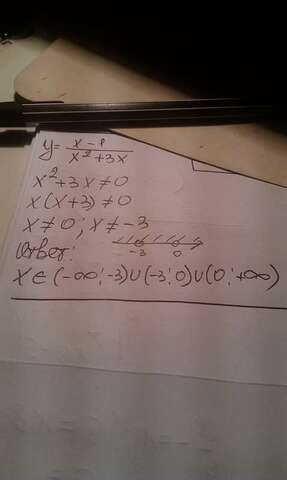 y = (x - 1)/(x² + 3x)
x² + 3x ≠ 0
x(x+3) ≠ 0
x ≠ 0; x ≠ -3
Ответ:
-3 0
x ∈ (-∞; -3) ∪ (-3; 0) ∪ (0; +∞)